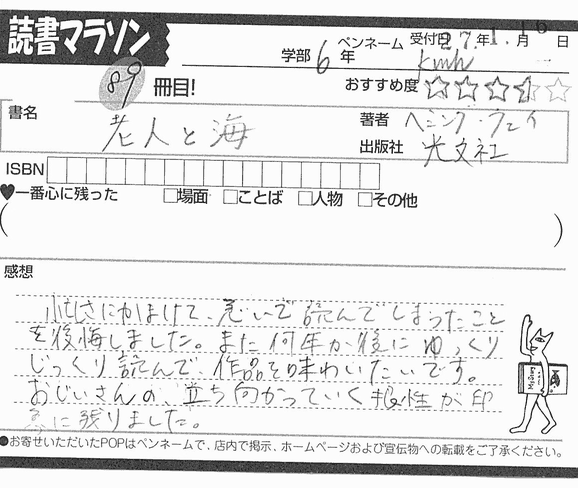 読書マラソン
学部 6 年
ペンネーム kmh
受付日 27.年 1.月 16 日
89 冊目!
おすすめ度 ☆☆☆☆☆
書名
老人と海
著者 ヘミング・ウェイ
出版社 光文社
ISBN
♥一番心に残った □場面 □ことば □人物 □その他
( )
感想
忙しさにかまけて、急いで読んでしまったこと
を後悔しました。また何年か後にゆっくり
じっくり読んで、作品を味わいたいです。
おじいさんの、立ち向かっていく根性が印
象に残りました。
●お寄せいただいたPOPはペンネームで、店内で掲示、ホームページおよび宣伝物への転載をご了承ください。